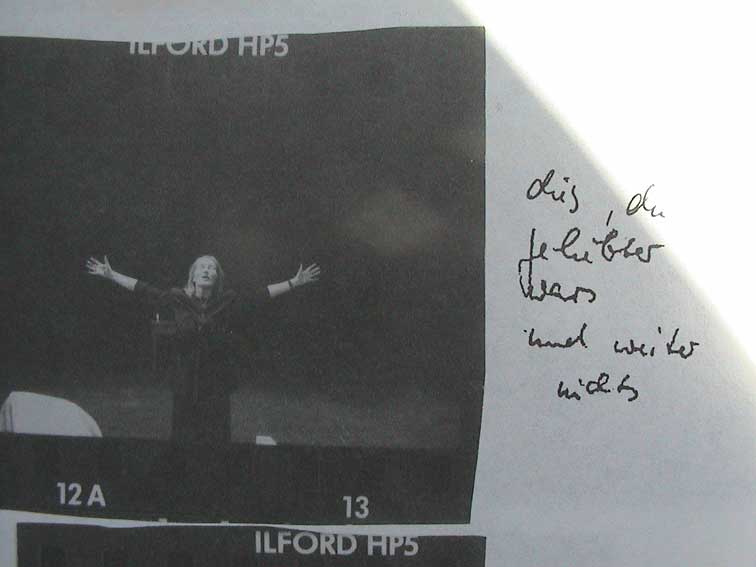 ILFORD HP5
dies, du
geliebter
wars
und weiter
nichts
12A 13
ILFORD HP5